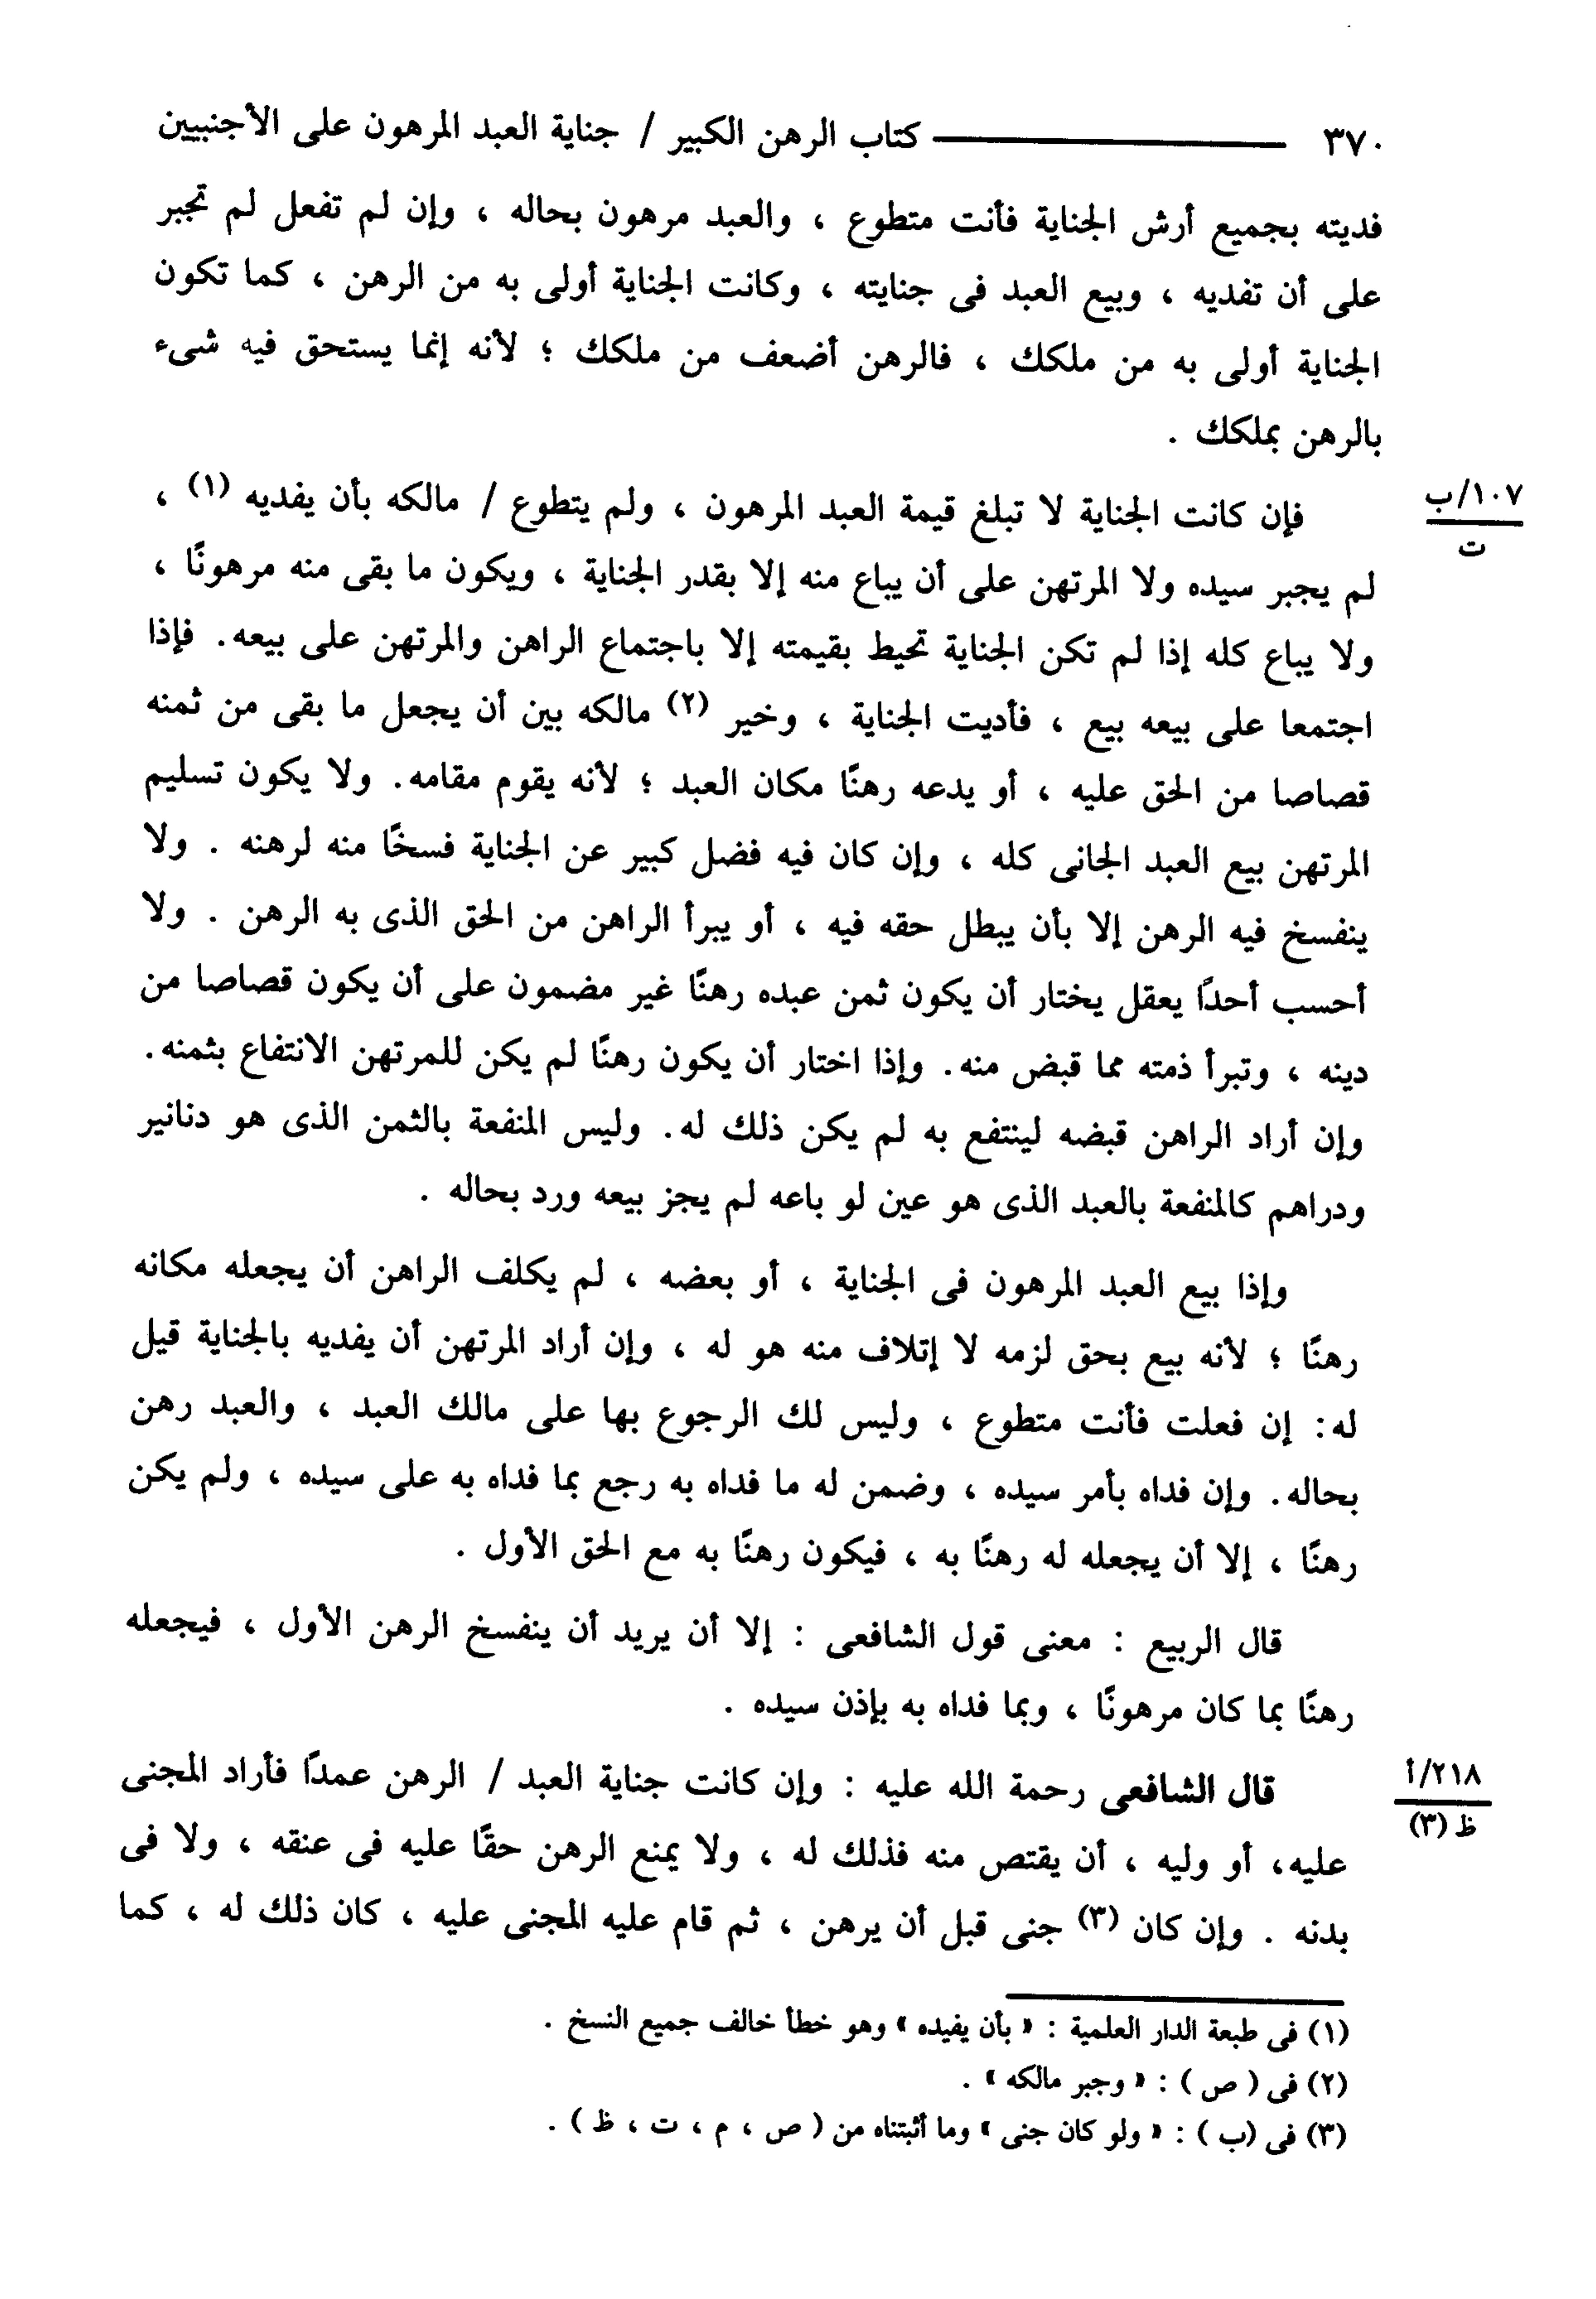 ٣٧٠ ــــــــــــ كتاب الرهن الكبير / جناية العبد المرهون على الأجنبيين
فديته بجميع أرش الجناية فأنت متطوع ، والعبد مرهون بحاله ، وإن لم تفعل لم تجبر
على أن تفديه ، وبيع العبد فى جنايته ، وكانت الجناية أولى به من الرهن ، كما تكون
الجناية أولى به من ملكك ، فالرهن أضعف من ملكك ؛ لأنه إنما يستحق فيه شىء
بالرهن بملكك .
فإن كانت الجناية لا تبلغ قيمة العبد المرهون ، ولم يتطوع / مالكه بأن يفديه (١) ،
١٠٧/ب
ت
لم يجبر سيده ولا المرتهن على أن يباع منه إلا بقدر الجناية ، ويكون ما بقى منه مرهونًا ،
ولا يباع كله إذا لم تكن الجناية تحيط بقيمته إلا باجتماع الراهن والمرتهن على بيعه. فإذا
اجتمعا على بيعه بيع ، فأديت الجناية ، وخير (٢) مالكه بين أن يجعل ما بقى من ثمنه
قصاصا من الحق عليه ، أو يدعه رهنًا مكان العبد ؛ لأنه يقوم مقامه. ولا يكون تسليم
المرتهن بيع العبد الجانى كله ، وإن كان فيه فضل كبير عن الجناية فسخًا منه لرهنه . ولا
ينفسخ فيه الرهن إلا بأن يبطل حقه فيه ، أو يبرأ الراهن من الحق الذى به الرهن . ولا
أحسب أحدًا يعقل يختار أن يكون ثمن عبده رهنًا غير مضمون على أن يكون قصاصا من
دينه ، وتبرأ ذمته مما قبض منه. وإذا اختار أن يكون رهنًا لم يكن للمرتهن الانتفاع بثمنه.
وإن أراد الراهن قبضه لينتفع به لم يكن ذلك له. وليس المنفعة بالثمن الذى هو دنانير
ودراهم كالمنفعة بالعبد الذى هو عين لو باعه لم يجز بيعه ورد بحاله .
وإذا بيع العبد المرهون فى الجناية ، أو بعضه ، لم يكلف الراهن أن يجعله مكانه
رهنًا ؛ لأنه بيع بحق لزمه لا إتلاف منه هو له ، وإن أراد المرتهن أن يفديه بالجناية قيل
له: إن فعلت فأنت متطوع ، وليس لك الرجوع بها على مالك العبد ، والعبد رهن
بحاله. وإن فداه بأمر سيده ، وضمن له ما فداه به رجع بما فداه به على سيده ، ولم يكن
رهنًا ، إلا أن يجعله له رهنًا به ، فيكون رهنًا به مع الحق الأول .
قال الربيع : معنى قول الشافعى : إلا أن يريد أن ينفسخ الرهن الأول ، فيجعله
رهنًا بما كان مرهونًا ، وبما فداه به بإذن سيده .
قال الشافعى رحمة الله عليه : وإن كانت جناية العبد / الرهن عمدًا فأراد المجنى
٢١٨/أ
ظ (٣)
عليه، أو وليه ، أن يقتص منه فذلك له ، ولا يمنع الرهن حقًا عليه فى عنقه ، ولا فى
بدنه . وإن كان (٣) جنى قبل أن يرهن ، ثم قام عليه المجنى عليه ، كان ذلك له ، كما
(١) فى طبعة الدار العلمية : « بأن يفيده » وهو خطأ خالف جميع النسخ .
(٢) فى ( ص ) : « وجبر مالكه » .
(٣) فى (ب ) : « ولو كان جنى » وما أثبتناه من ( ص ، م ، ت ، ظ ) .